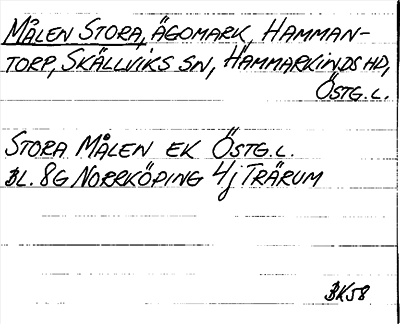 MÅLEN STORA, ÄGOMARK, HAMMAN-
TORP, SKÄLLVIKS SN, HAMMARKINDS HD,
ÖSTG. L.
STORA MÅLEN EK ÖSTG. L.
BL. 8G NORRKÖPING 4j TRÄRUM
BK58